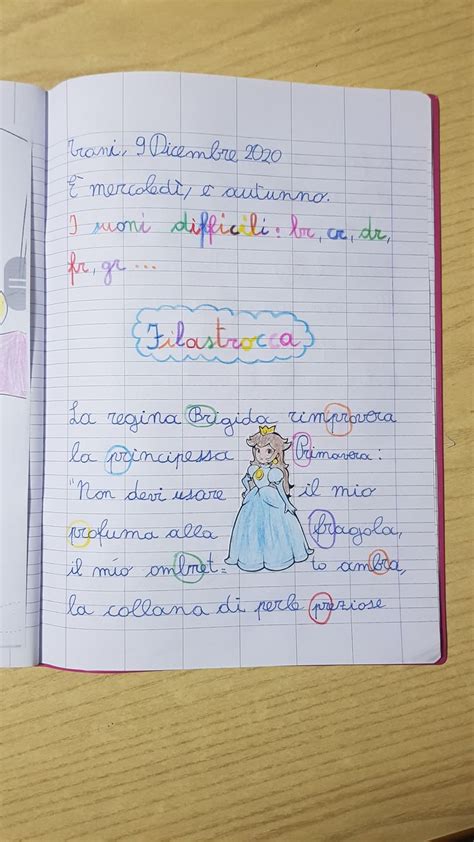 Trani, 9 Dicembre 2020
È mercoledì, è autunno.
I suoni difficili: br, cr, dr,
fr, gr ...
Filastrocca
La regina Brigida rimprovera
la principessa Primavera:
"Non devi usare il mio
profuma alla fragola,
il mio ombret= to ambra,
la collana di perle preziose